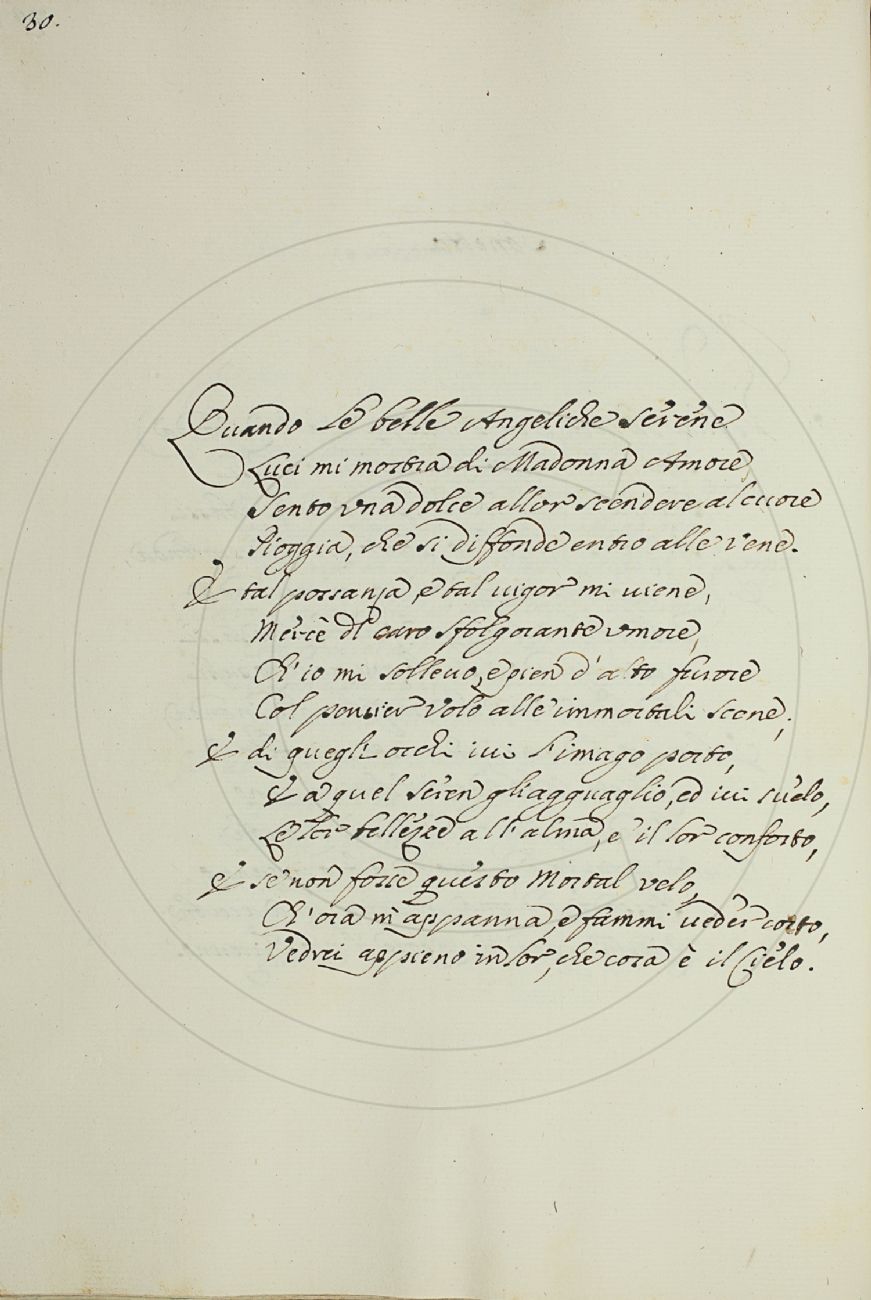 30.
Quando Le belle Angeliche serene
Luci mi mostra di Madonna Amore
Sento una dolce allor scendere al cuore
Pioggia, che si diffonde entro alle vene.
E tal possanza, e tal vigor mi viene,
Mercè del caro sfolgorante umore,
Ch'io mi sollevo, e pien d'alto furore
Col pensier volo alle immortali scene;
E di quegli occhi ivi l'imago porto,
E a quel seren gli agguaglio, ed ivi svelo,
Le lor bellezze all'alma, e il lor conforto,
E se non fosse questo Mortal velo,
Ch'ora m'appanna, e fammi veder corto,
Vedrei appieno in lor, che cosa è il Cielo.